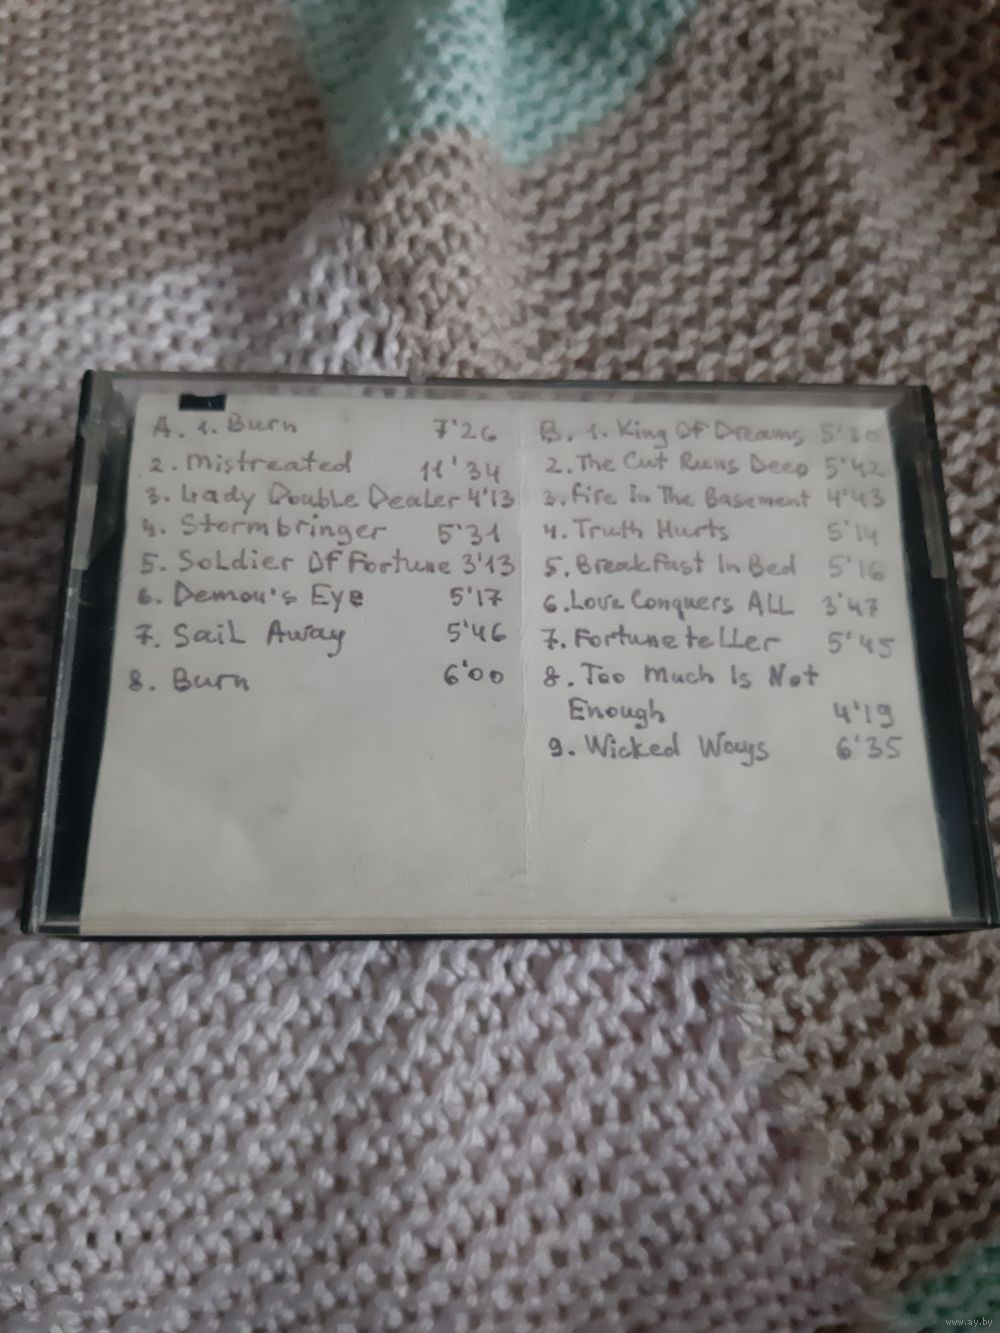 A. 1. Burn 7'26
2. Mistreated 11'34
3. Lady Double Dealer 4'13
4. Stormbringer 5'31
5. Soldier Of Fortune 3'13
6. Demon's Eye 5'17
7. Sail Away 5'46
8. Burn 6'00
B. 1. King Of Dreams 5'30
2. The Cut Runs Deep 5'42
3. Fire In The Basement 4'43
4. Truth Hurts 5'14
5. Breakfast In Bed 5'16
6. Love Conquers ALL 3'47
7. Fortuneteller 5'45
8. Too Much Is Not
Enough 4'19
9. Wicked Ways 6'35
www.ay.by